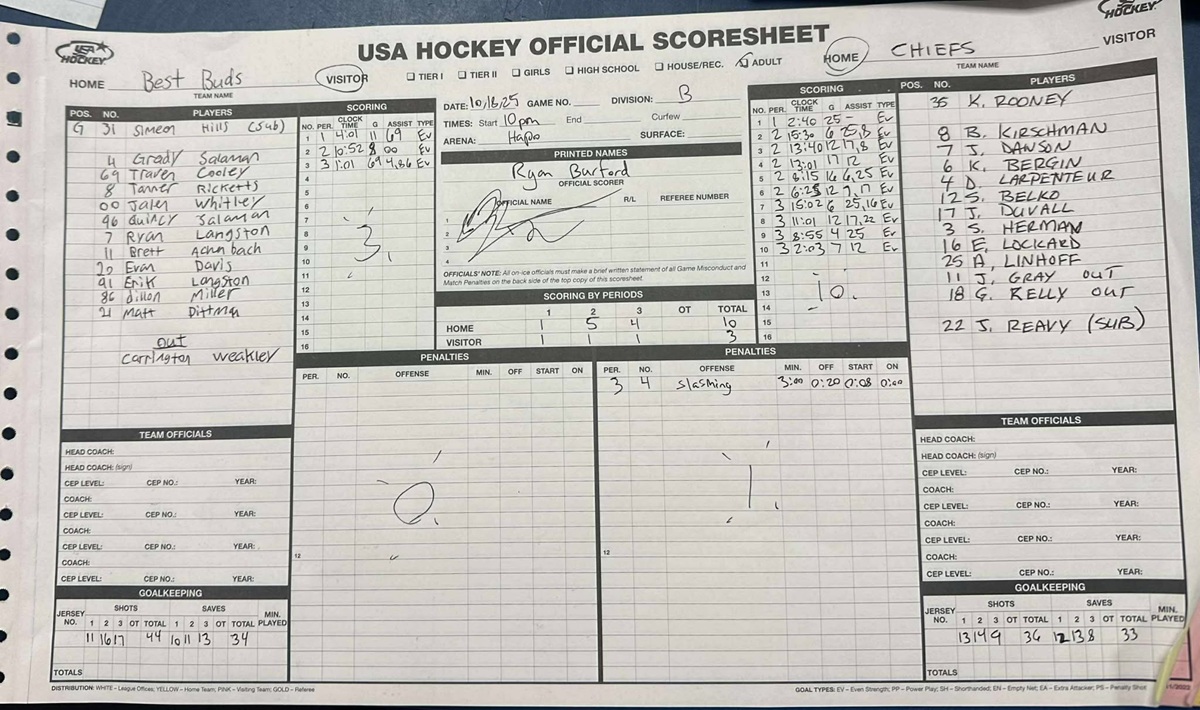 USA HOCKEY
USA HOCKEY OFFICIAL SCORESHEET
HOCKEY
HOME Best Buds VISITOR
TEAM NAME
☐ TIER I ☐ TIER II ☐ GIRLS ☐ HIGH SCHOOL ☐ HOUSE/REC. ☑ ADULT
HOME CHIEFS VISITOR
TEAM NAME
POS. NO. PLAYERS
G 31 Simeon Hills (Sub)
4 Grady Salaman
69 Traven Cooley
8 Tanner Ricketts
00 Jalen Whitley
96 Quincy Salaman
7 Ryan Langston
11 Brett Achenbach
20 Evan Davis
91 Erik Langston
86 dillon Miller
21 Matt Dittman
out
Carrington Weakley
SCORING
NO. PER. CLOCK TIME G ASSIST TYPE
1 1 4:01 11 69 Ev
2 2 10:52 8 00 Ev
3 3 1:01 69 4,86 Ev
4
5
6
7
8
9
10
11
12
13
14
15
16
3
DATE: 10/16/25 GAME NO. DIVISION: B
TIMES: Start 10pm End Curfew
ARENA: Hapo SURFACE:
PRINTED NAMES
Ryan Burford
OFFICIAL SCORER
OFFICIAL NAME R/L REFEREE NUMBER
1
2
3
4
OFFICIALS' NOTE: All on-ice officials must make a brief written statement of all Game Misconduct and
Match Penalties on the back side of the top copy of this scoresheet.
SCORING BY PERIODS
1 2 3 OT TOTAL
HOME 1 5 4 10
VISITOR 1 1 1 3
SCORING
NO. PER. CLOCK TIME G ASSIST TYPE
1 1 2:40 25 - Ev
2 2 15:30 6 25,8 Ev
3 2 13:40 12 17,8 Ev
4 2 13:01 17 12 Ev
5 2 8:15 16 6,25 Ev
6 2 6:25 12 7,17 Ev
7 3 15:02 6 25,16 Ev
8 3 11:01 12 17,22 Ev
9 3 8:55 4 25 Ev
10 3 2:03 7 12 Ev
11
12
13
14
15
16
10
POS. NO. PLAYERS
35 K. ROONEY
8 B. KIRSCHMAN
7 J. DAWSON
6 K. BERGIN
4 D. LARPENTEUR
12 S. BELKO
17 J. DUVALL
3 S. HERMAN
16 E. LOCKARD
25 A. LINHOFF
11 J. GRAY OUT
18 G. KELLY OUT
22 J. REAVY (SUB)
PENALTIES
PER. NO. OFFENSE MIN. OFF START ON
0
12
PENALTIES
PER. NO. OFFENSE MIN. OFF START ON
3 4 Slashing 3:00 0:20 0:08 0:00
1
12
TEAM OFFICIALS
HEAD COACH:
HEAD COACH: (sign)
CEP LEVEL: CEP NO.: YEAR:
COACH:
CEP LEVEL: CEP NO.: YEAR:
COACH:
CEP LEVEL: CEP NO.: YEAR:
COACH:
CEP LEVEL: CEP NO.: YEAR:
GOALKEEPING
JERSEY NO. SHOTS SAVES MIN. PLAYED
1 2 3 OT TOTAL 1 2 3 OT TOTAL
11 16 17 44 10 11 13 34
TOTALS
TEAM OFFICIALS
HEAD COACH:
HEAD COACH: (sign)
CEP LEVEL: CEP NO.: YEAR:
COACH:
CEP LEVEL: CEP NO.: YEAR:
COACH:
CEP LEVEL: CEP NO.: YEAR:
COACH:
CEP LEVEL: CEP NO.: YEAR:
GOALKEEPING
JERSEY NO. SHOTS SAVES MIN. PLAYED
1 2 3 OT TOTAL 1 2 3 OT TOTAL
13 14 9 36 12 13 8 33
TOTALS
DISTRIBUTION: WHITE – League Offices; YELLOW – Home Team; PINK – Visiting Team; GOLD – Referee
GOAL TYPES: EV – Even Strength; PP – Power Play; SH – Shorthanded; EN – Empty Net; EA – Extra Attacker; PS – Penalty Shot
11/2022